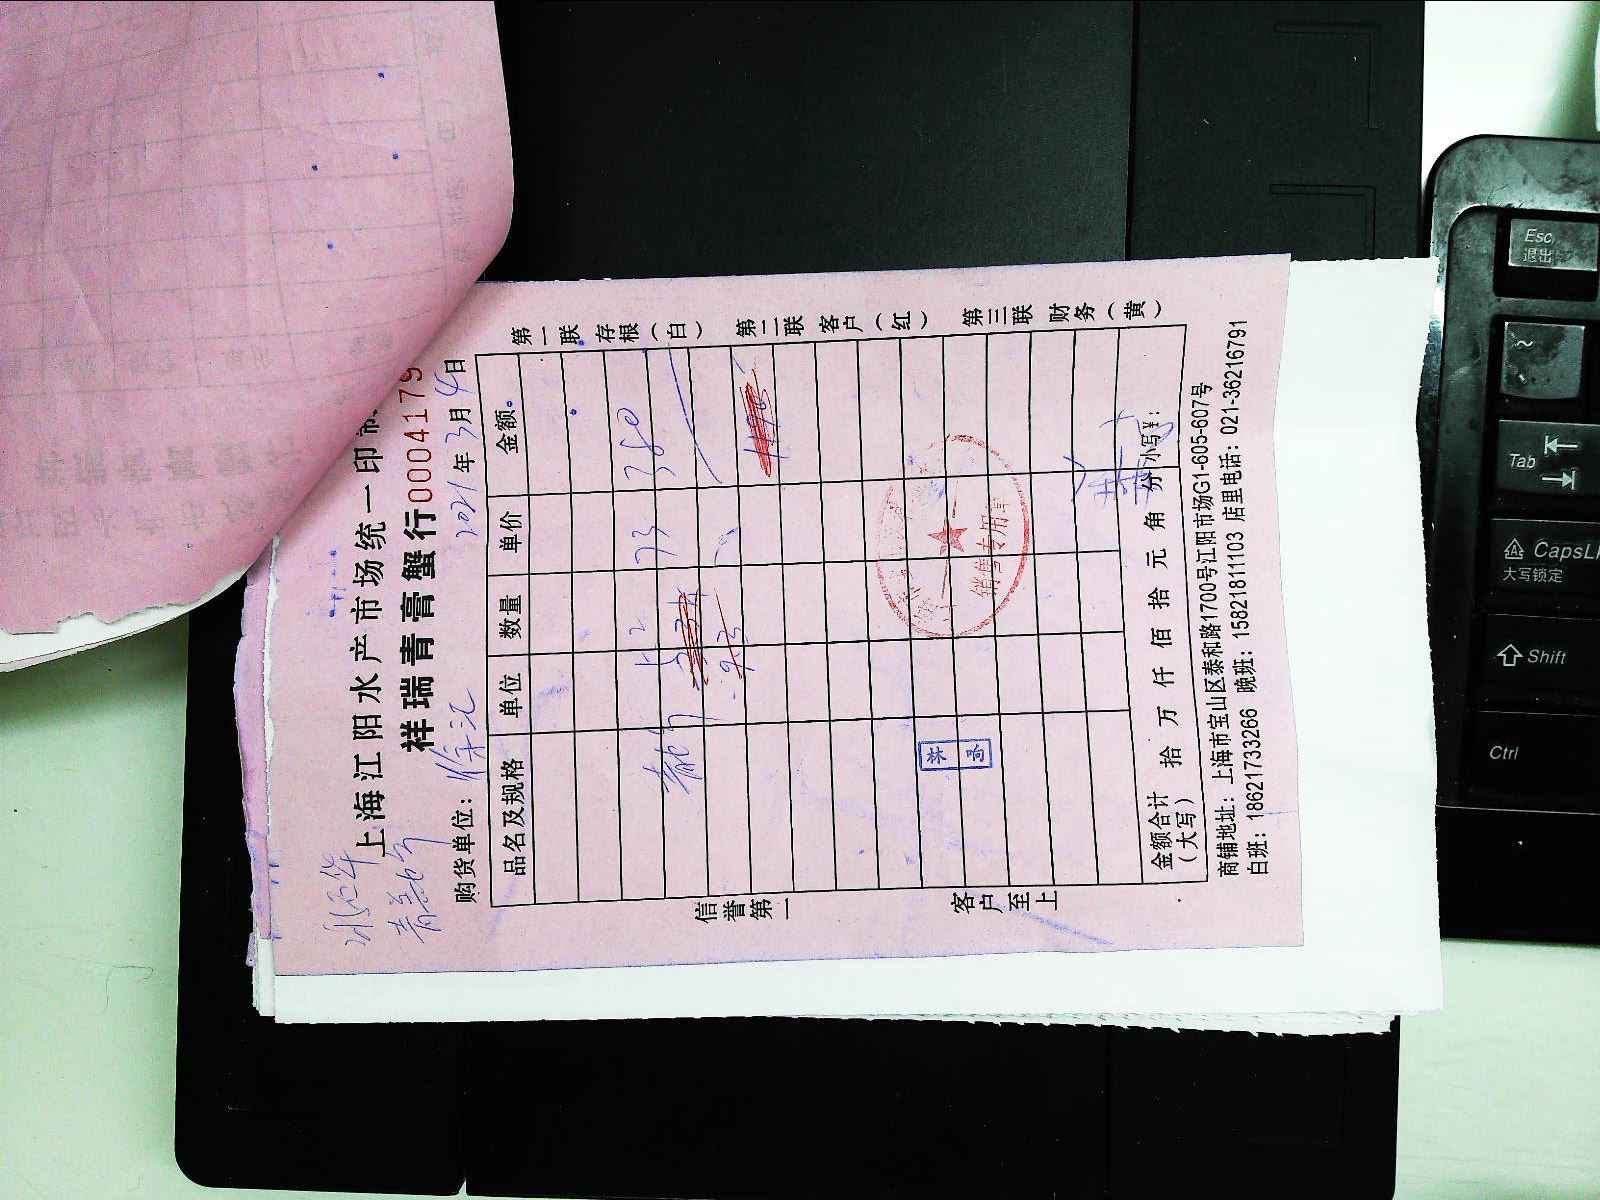 上海江阳水产市场统一印制
祥瑞青膏蟹行0004179
购货单位：徐汇 2021年3月4日
品名及规格 单位 数量 单价 金额
5.2 73 380
9.3
信誉第一 客户至上
第一联 存根（白） 第二联 客户（红） 第三联 财务（黄）
销售专用章
金额合计（大写） 拾 万 仟 佰 拾 元 角 份 小写¥：
商铺地址：上海市宝山区泰和路1700号江阳市场G1-605-607号
白班：18621733266 晚班：15821811103 店里电话：021-36216791
Esc
退出
~
Tab
CapsL
大写锁定
Shift
Ctrl